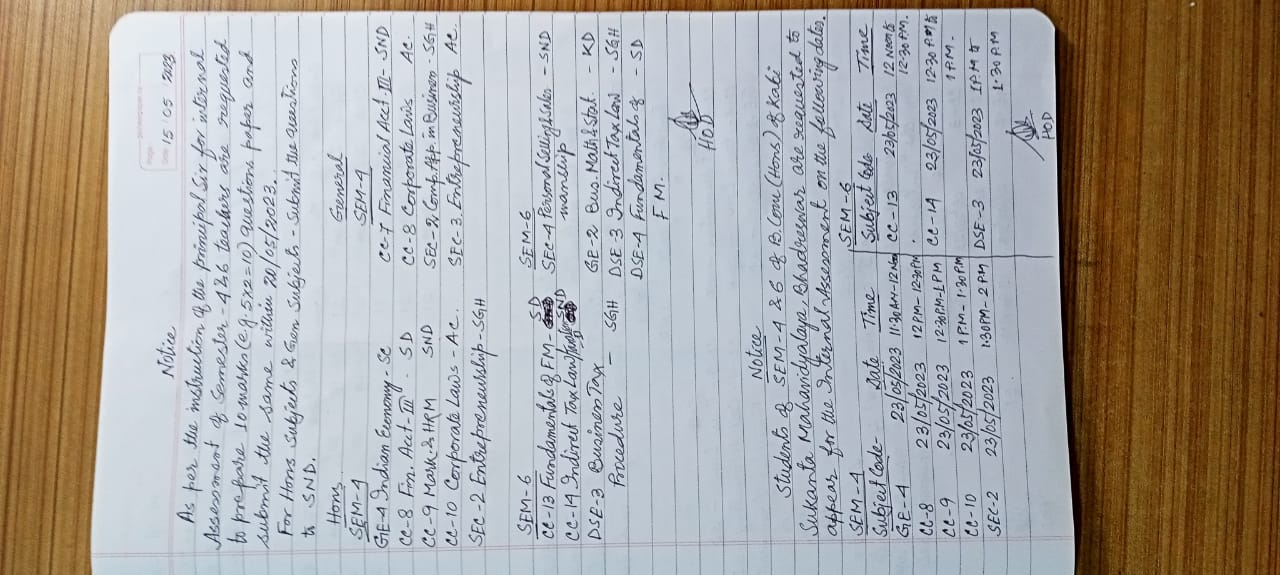 Date 15/05/2023
Notice
As per the instruction of the principal Sir for internal
Assessment of Semester - 4 & 6 teachers are requested
to prepare 10 marks (e.g. 5x2=10) questions paper and
submit the same within 20/05/2023.
For Hons Subjects & Gen Subjects - Submit the questions
to SND.
Hons General
SEM-4 SEM-4
GE-4 Indian Economy - SC CC-7 Financial Acct III - SND
CC-8 Fin. Acct-III - SD CC-8 Corporate Laws AC.
CC-9 Mark & HRM SND SEC-2 Comp. App. in Business - SGH
CC-10 Corporate Laws - AC. SEC-3. Entrepreneurship AC.
SEC-2 Entrepreneurship - SGH
SEM-6 SEM-6
CC-13 Fundamentals of FM - SD SEC-4 Personal Selling & Sales- - SND
CC-14 Indirect Tax Law SND manship
DSE-3 Business Tax GE-2 Bus. Math & Stat. - KD
Procedure - SGH DSE-3 Indirect Tax Law - SGH
DSE-4 Fundamentals of - SD
FM.
HOD
Notice
Students of SEM-4 & 6 of B.Com (Hons) of Kabi
Sukanta Mahavidyalaya, Bhadreswar are requested to
appear for the Internal Assessment on the following dates.
SEM-4 SEM-6
Subject Code Date Time Subject Code Date Time
GE-4 23/05/2023 11:30 AM-12 Noon CC-13 23/05/2023 12 Noon to
12:30 PM.
CC-8 23/05/2023 12 PM-12:30 PM.
CC-9 23/05/2023 12:30 PM-1 PM CC-14 23/05/2023 12:30 PM to
1 PM.
CC-10 23/05/2023 1 PM-1:30 PM
SEC-2 23/05/2023 1:30 PM-2 PM DSE-3 23/05/2023 1 PM to
1:30 PM
HOD